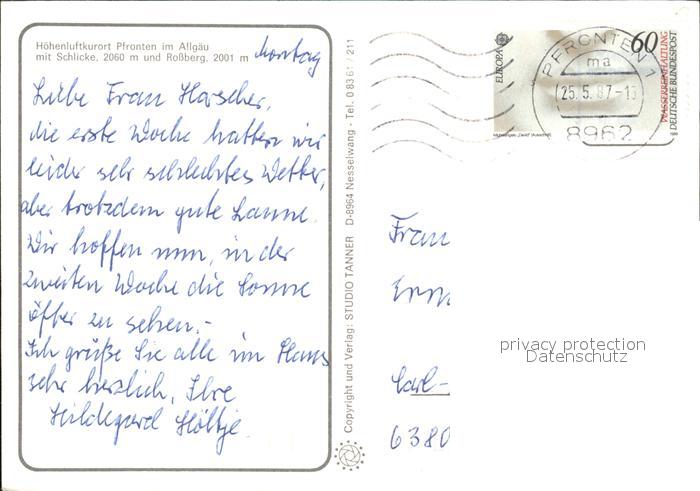 Höhenluftkurort Pfronten im Allgäu
mit Schlicke, 2060 m und Roßberg, 2001 m
Montag
Liebe Frau Horscher,
die erste Woche hatten wir
leider sehr schlechtes Wetter,
aber trotzdem gute Laune.
Wir hoffen nun, in der
zweiten Woche die Sonne
öfter zu sehen.-
Ich grüße Sie alle im Haus
sehr herzlich, Ihre
Hildegard Höltje
Copyright und Verlag: STUDIO TANNER D-8964 Nesselwang - Tel. 08361/211
EUROPA
60
WASSERREINHALTUNG
DEUTSCHE BUNDESPOST
PFRONTEN 1
ma
25.5.87-15
8962
Frau
Carl-
6380
privacy protection
Datenschutz